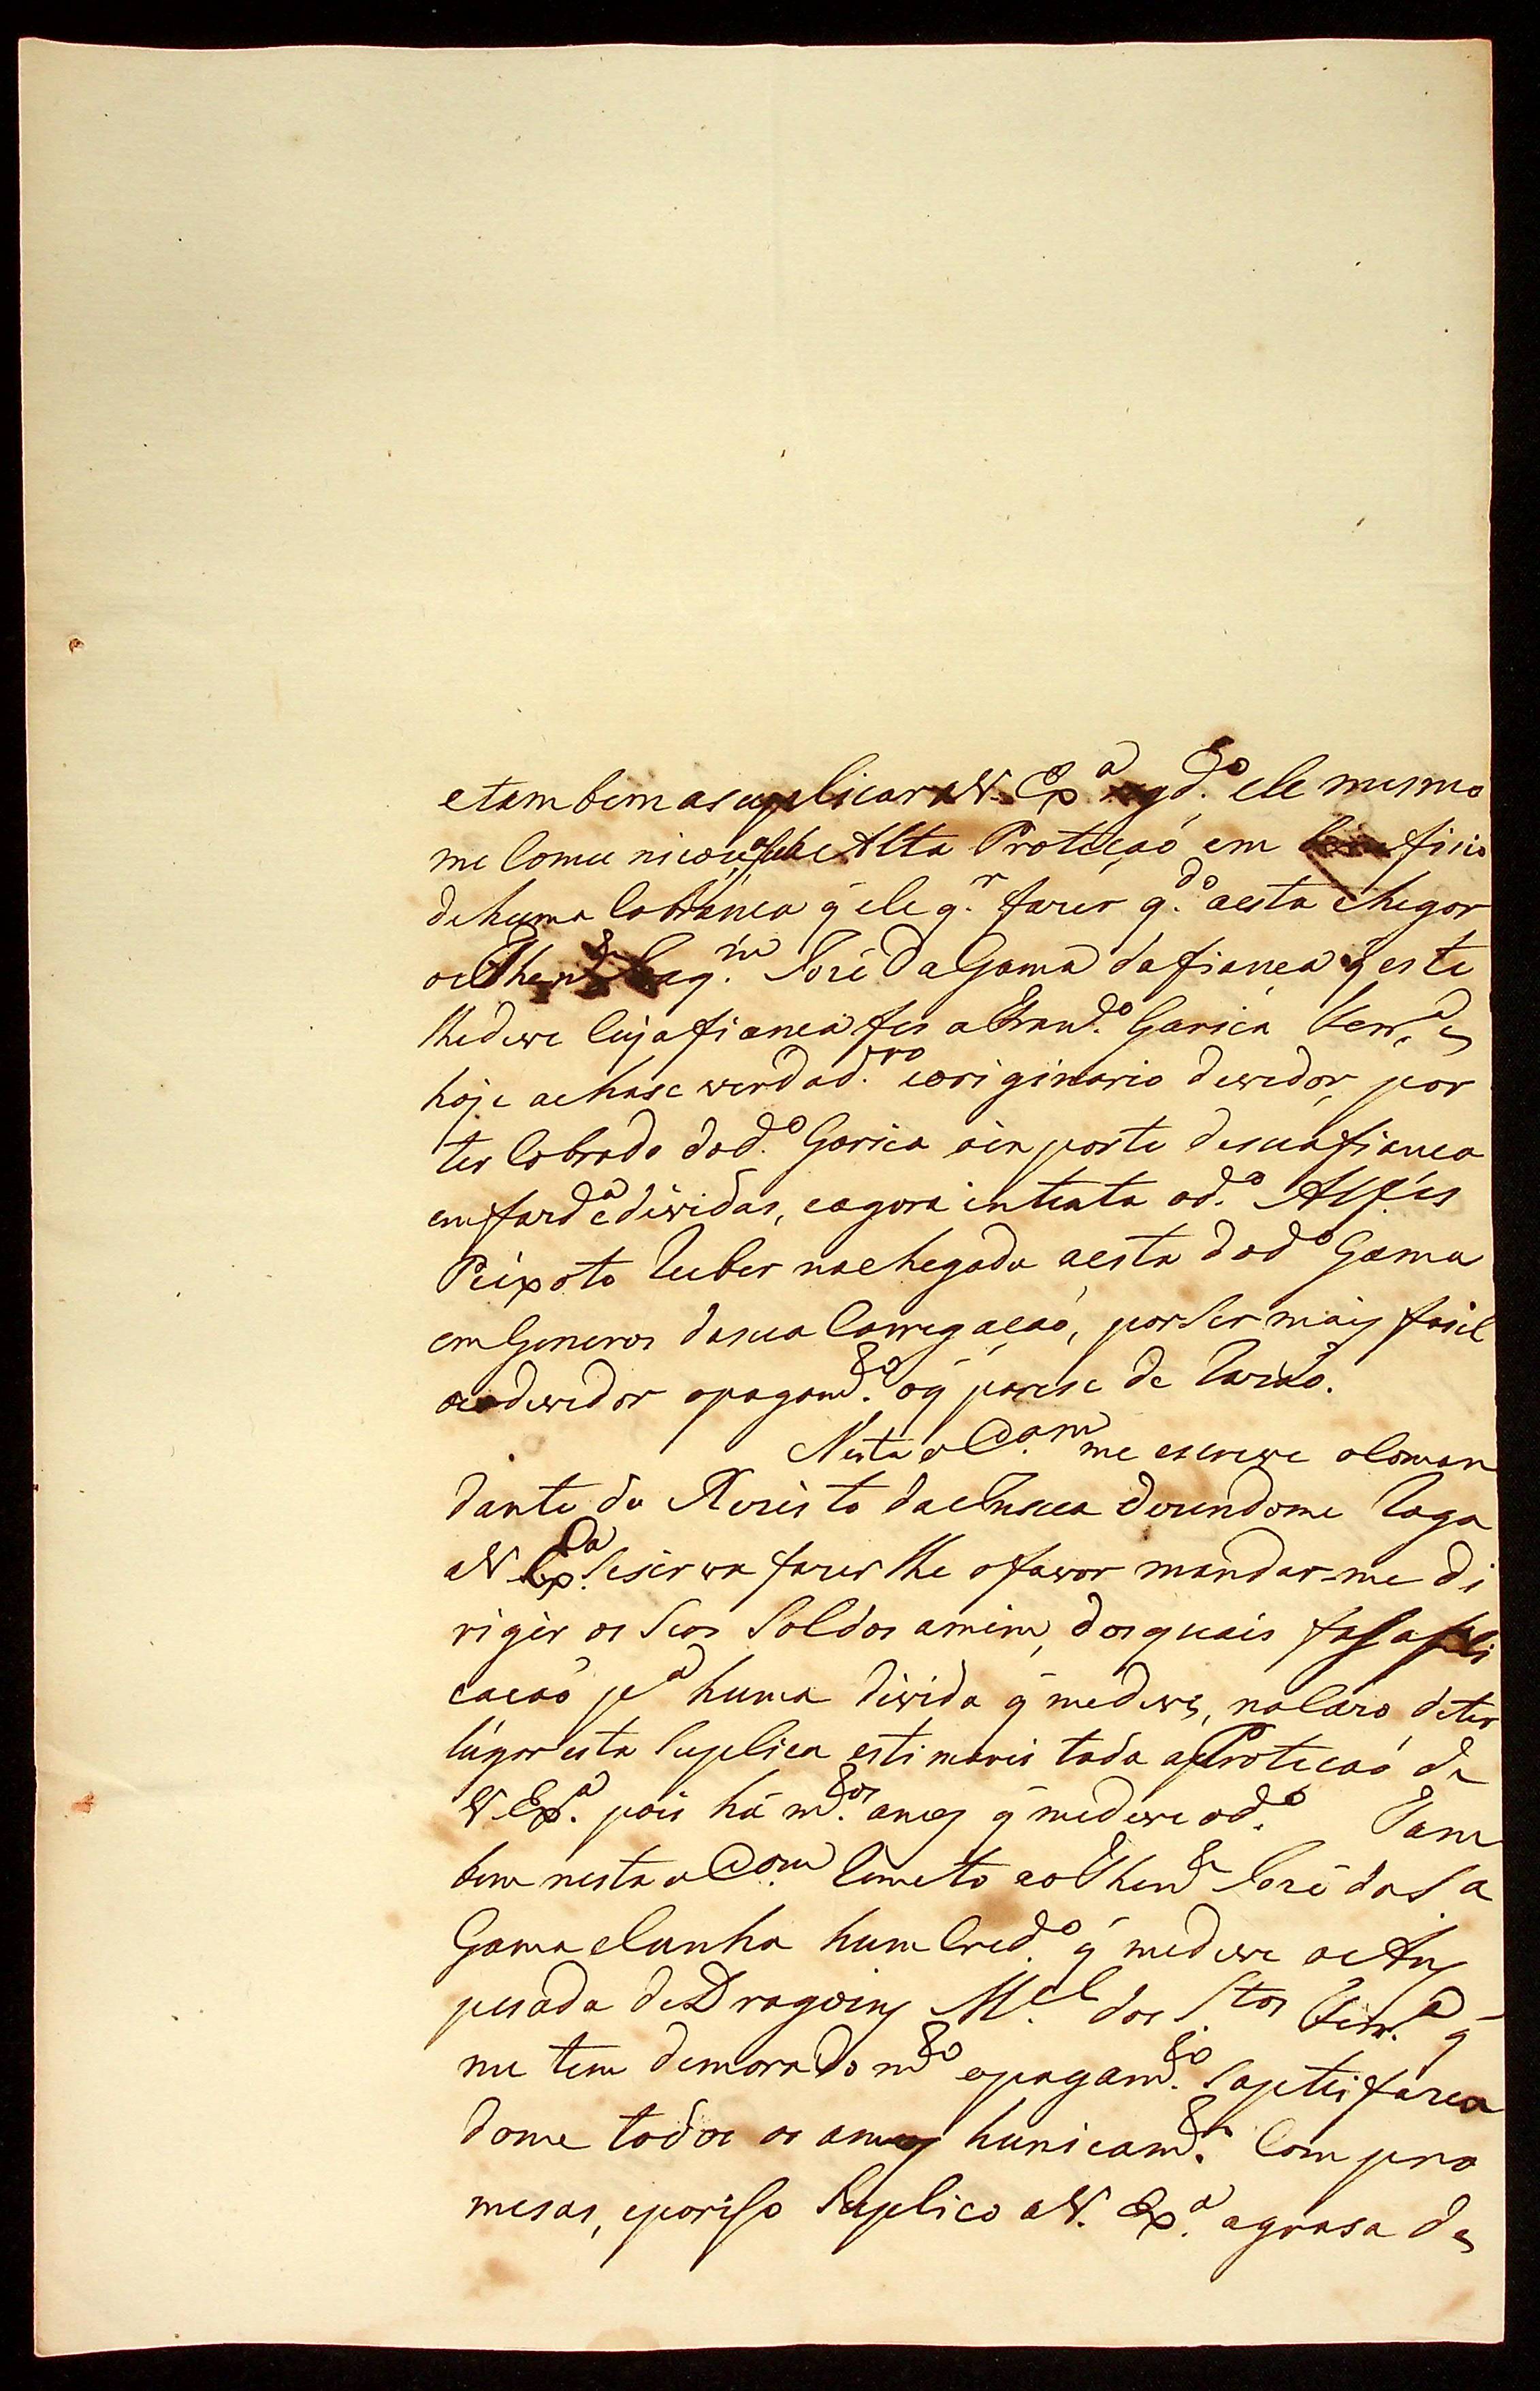 etambem asuplicar a V. Exª seg.do ele mesmo
me Comunicou, sua Alta Proteçaó em beneficio
dehuma Cobránca q̃ ele q.r fazer q.do aesta chegar
o Then.e Joaq.m Jozé DaGama dafianca q̃ este
lhedeve Cujafianca fes a Garica
hoje achase verdad.ro eoriginario devedor, por
ter Cobrado dod.o Garica oinporte desuafianca
emfard.a edividas, eagora intenta od.o Alf.es
Peixoto Receber nachegada aesta dod.o Gama
emGeneros dasua Carregacaó, porSer mais fasil
aodevedor opagam.to oq̃ parese de Razaó.
Nesta oCazm me escreve oComan
dante do Rezisto daeInsua dizendome Roga
aV Exª Sesirva fazerlhe ofavor mandar-me di
rigir os Seos Soldos amim, dosquais fas apli
cacaó pª huma divida q̃ medeve, nocazo deter
lúgar esta Suplica estimarei toda aProtecaó de
V Exª. pois há m.tos anos q̃ medeve od.o Tam
bem nesta oCazm Remeto ao Then.e Jozé daSª
Gama eCunha hum Cred.o q̃ medeve oAns
pesada deDragoins M.el dos S.tos Ferr.ª q̃
me tem demorado m.to opagam.to Saptisfazen
dome todos os anos hunicam.te Com pro
mesas, eporiso Suplico aV. Exª. agrasa de